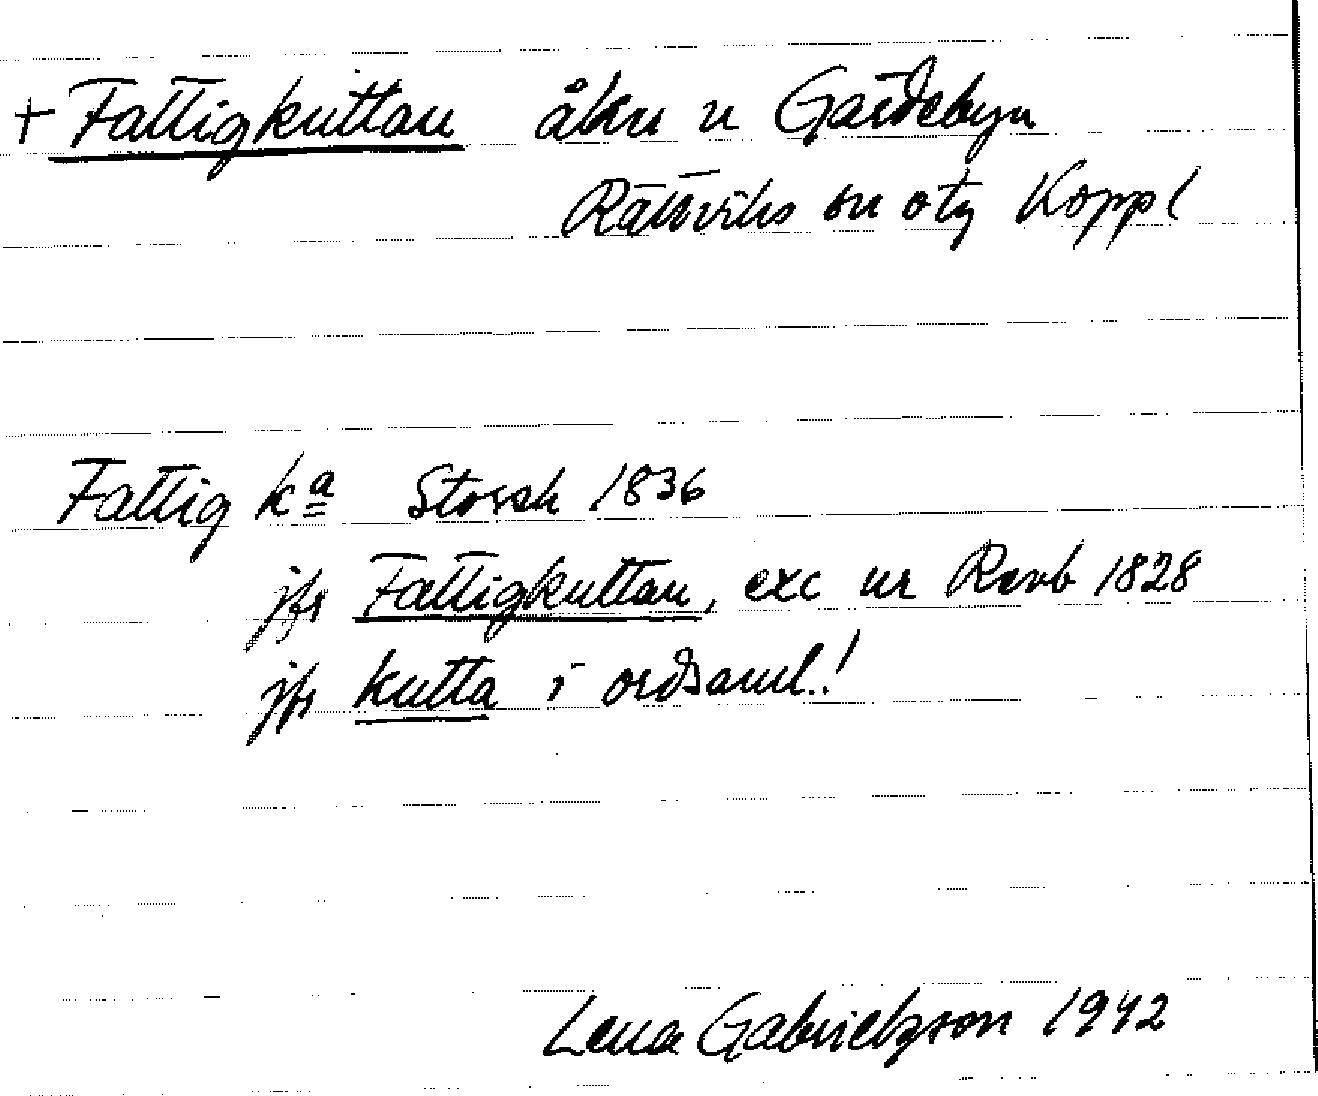 + Fattigkuttan åkrr n Gärdebyn
Rättviks sn o tg Koppl
Fattig ka Storsk 1836
jfr Fattigkuttan, exc ur Revb 1828
jfr kutta i ordsaml.!
Lena Gabrielsson 1942